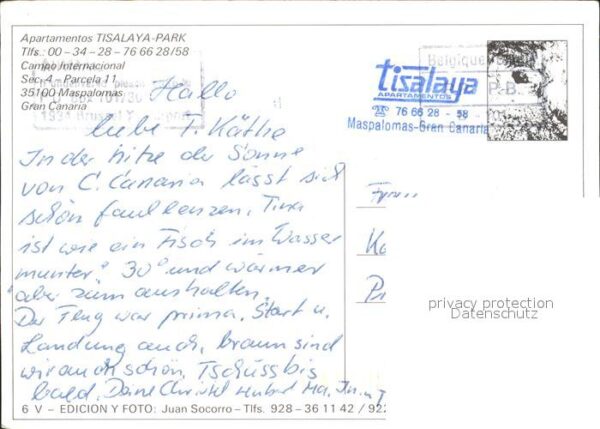 Apartamentos TISALAYA-PARK
Tlfs. 00-34-28-76 66 28/58
Campo Internacional
Sec. 4 - Parcela 11
35100 Maspalomas
Gran Canaria
Belgique
P.B.
tisalaya
APARTAMENTOS
☎ 76 66 28 - 58
Maspalomas-Gran Canaria
Hallo
liebe T. Käthe
In der Hitze der Sonne
von G. Canaria lässt sich
schön faullenzen, Tina
ist wie ein Fisch im Wasser
munter. 30° und wärmer
aber zum aushalten.
Der Flug war prima, Start u.
Landung auch, braun sind
wir auch schön, Tschüss bis
bald, Deine Christel Hubert
Frau
privacy protection
Datenschutz
6 V - EDICION Y FOTO: Juan Socorro - Tlfs. 928 - 36 11 42 / 922